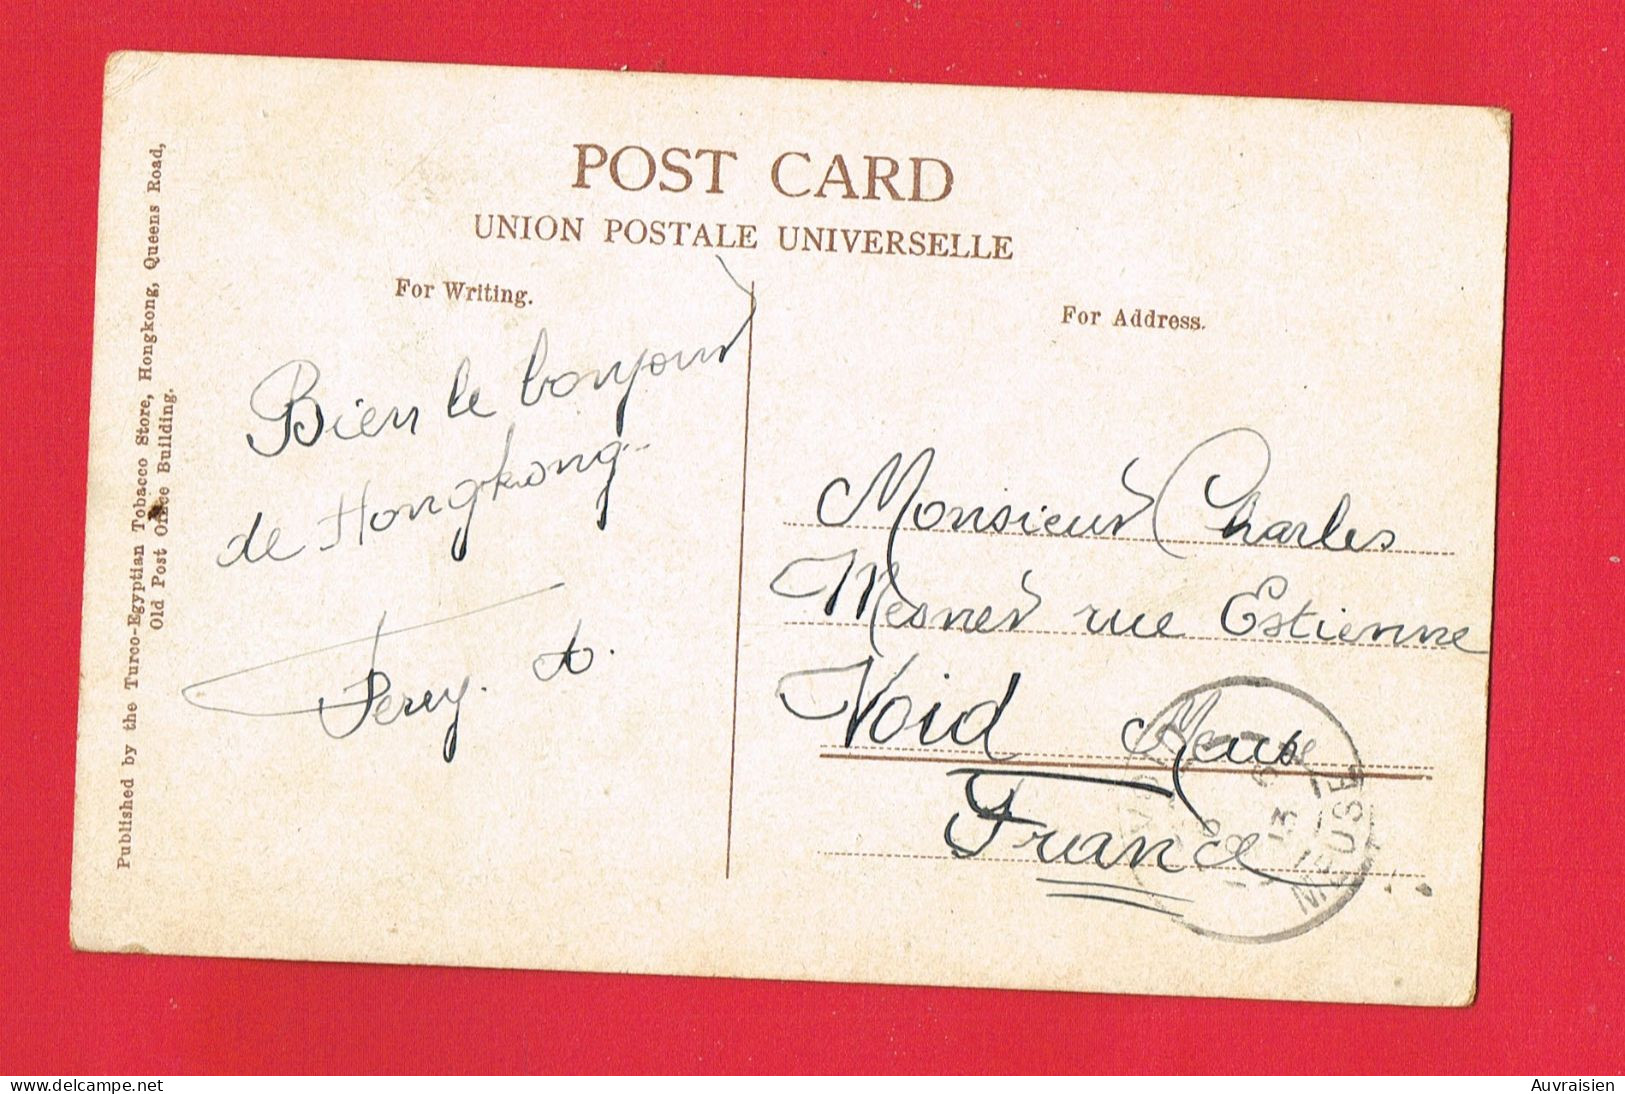 POST CARD
UNION POSTALE UNIVERSELLE
For Writing.
For Address.
Published by the Turco-Egyptian Tobacco Store, Hongkong, Queens Road,
Old Post Office Building.
Bien le bonjour
de Hongkong
Monsieur Charles
Mesner rue Estienne
Void Meuse
France
MEUSE
13
delcampe.net
Auvraisien